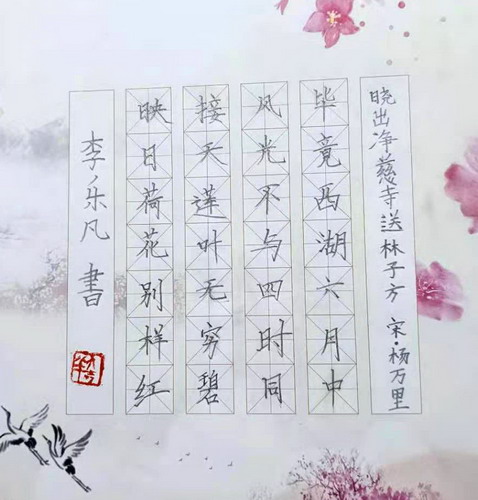 晓出净慈寺送林子方 宋·杨万里
毕竟西湖六月中
风光不与四时同
接天莲叶无穷碧
映日荷花别样红
李乐凡 書